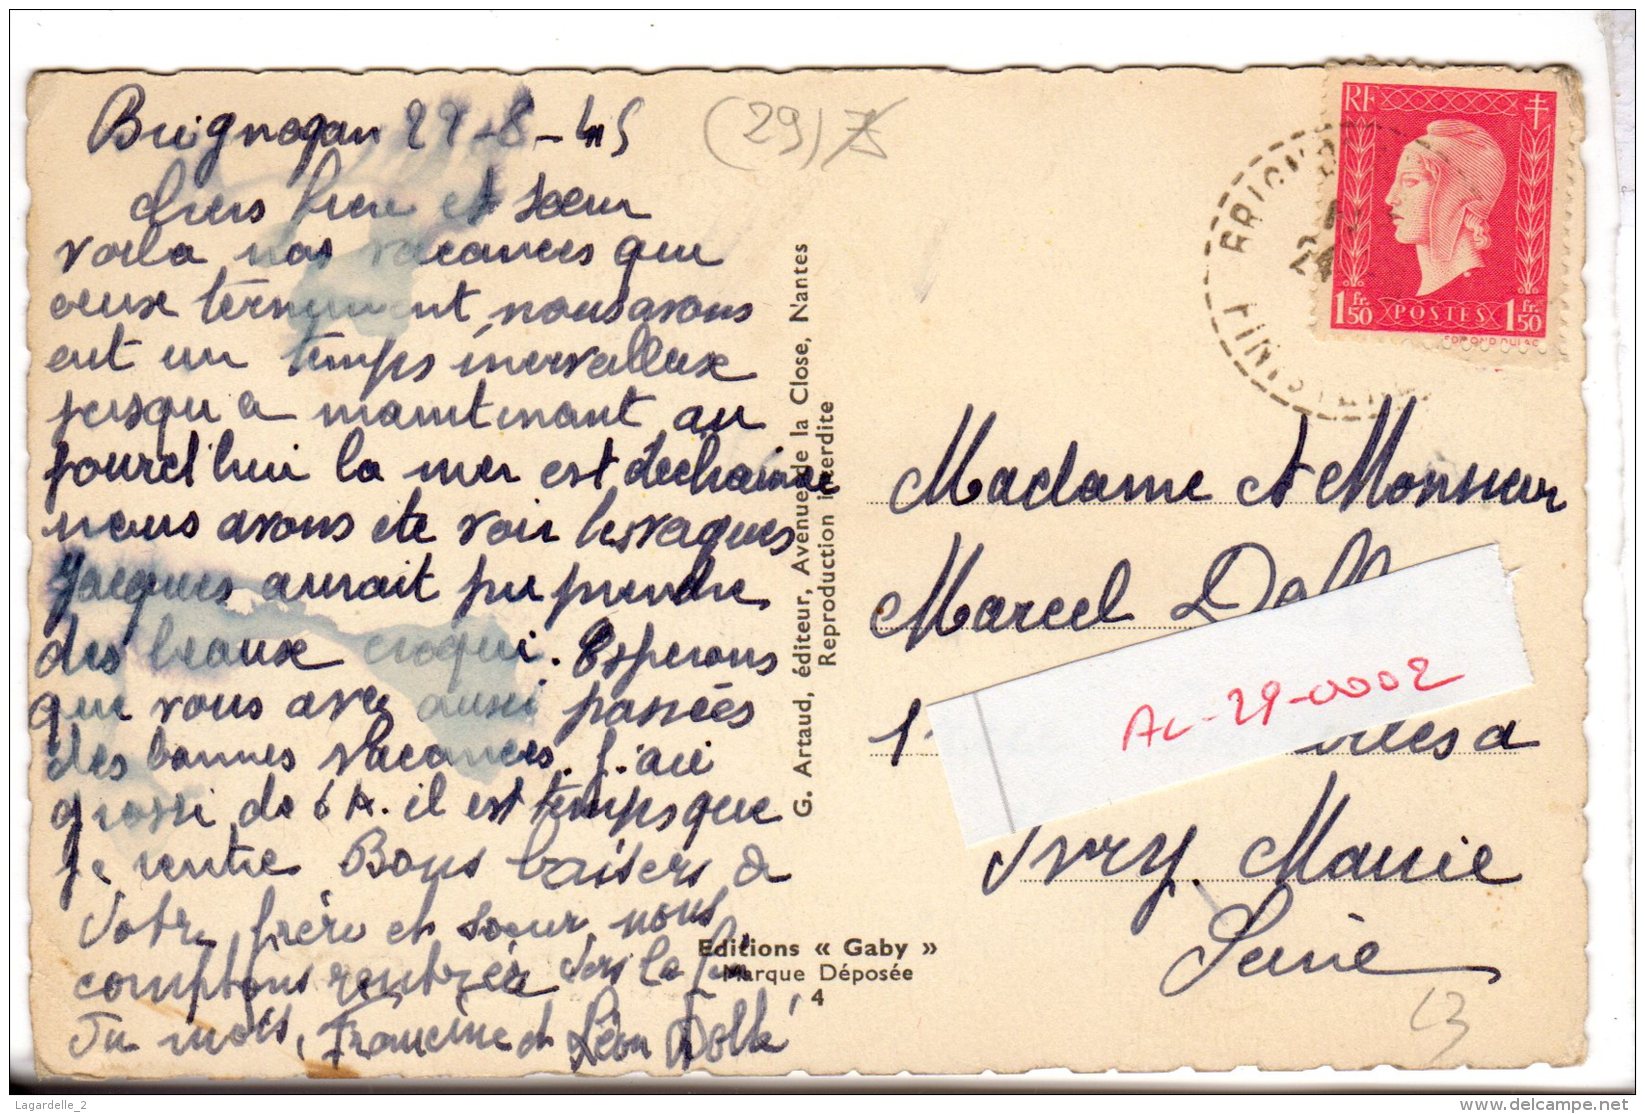 Brignogan 22-8-45
(29)
chers frere et sœur
voila nos vacances qui
ceux terminent, nous avons
eut un temps mervalleux
jusqu a maintenant au
jourd'hui la mer est dechainée
nous avons ete voir les vagues
Jacques aurait pu prendre
des beaux croqui. Esperons
que vous avez aussi passées
des bonnes vacances. J.ai
grossi de 6 k. il est temps que
je rentre Bons baisers de
Votre frère et sœur, nous
comptons rentrer vers la fin
Du mois, Francine et Léon Dollé
G. Artaud, éditeur, Avenue de la Close, Nantes
Reproduction interdite
Editions « Gaby »
Marque Déposée
4
RF
1 Fr. 50 POSTES 1 Fr. 50
EDMOND DULAC
BRIGNO
24
FINISTERE
Madame et Monsieur
Marcel Doll
1
AL-29-0002
Ivry. Mairie
Seine
13
Lagardelle_2
www.delcampe.net